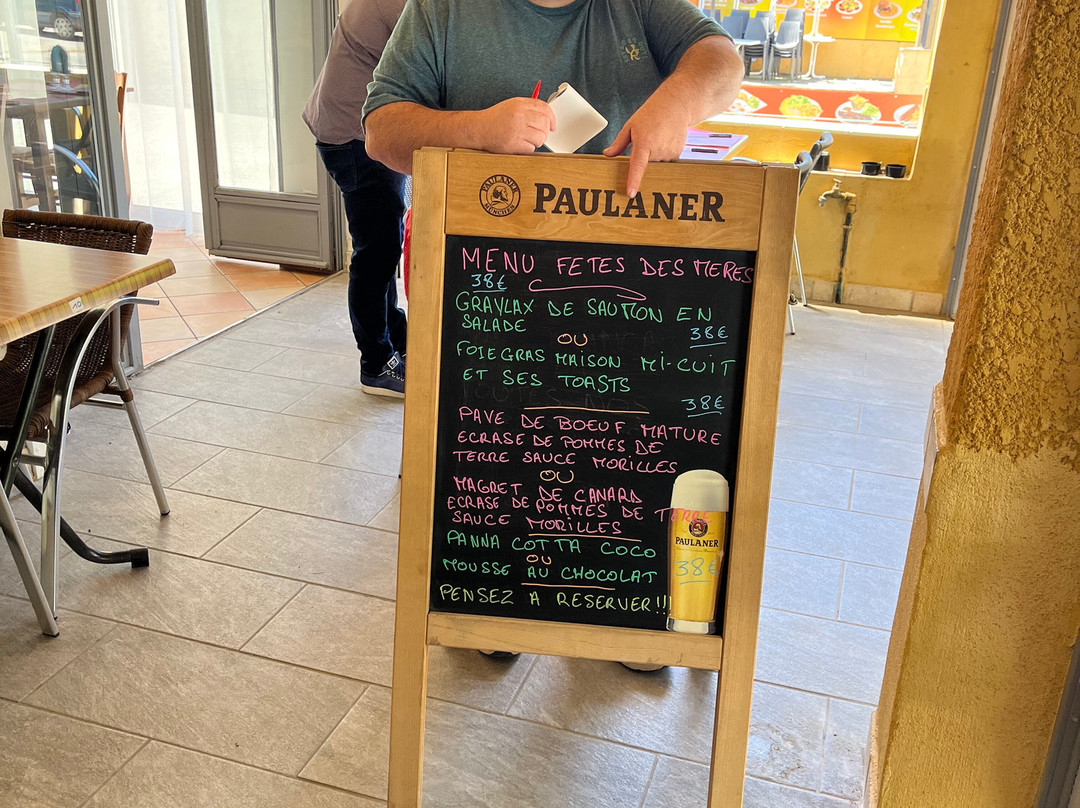 PAULANER
MÜNCHEN
PAULANER
MENU FETES DES MERES
38€
GRAVLAX DE SAUMON EN
SALADE
38€
OU
FOIE GRAS MAISON MI-CUIT
ET SES TOASTS
38€
PAVE DE BOEUF MATURE
ECRASE DE POMMES DE
TERRE SAUCE MORILLES
OU
MAGRET DE CANARD
ECRASE DE POMMES DE TERRE
SAUCE MORILLES
PANNA COTTA COCO
OU
MOUSSE AU CHOCOLAT
PENSEZ A RESERVER!!!
PAULANER
38€
10